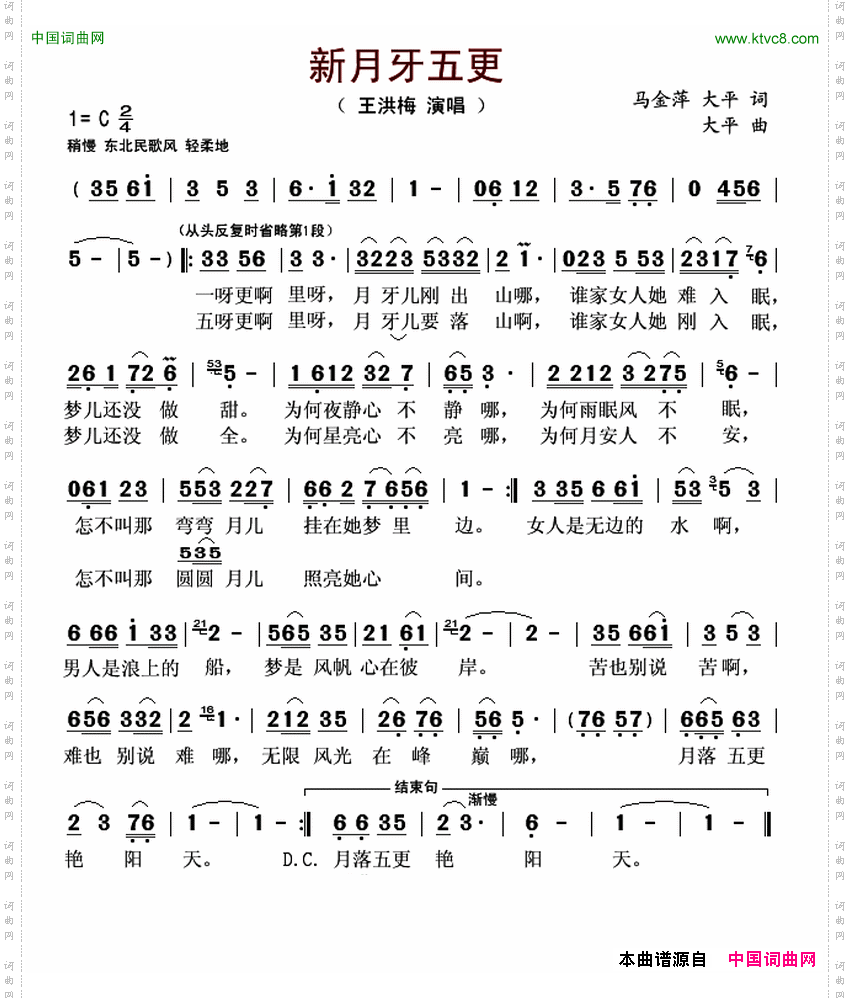 中国词曲网 www.ktvc8.com
新月牙五更
（ 王洪梅 演唱 ）
马金萍 大平 词
大平 曲
1= C 2/4
稍慢 东北民歌风 轻柔地
( 35 61 | 3 5 3 | 6· 1 32 | 1 - | 06 12 | 3· 5 76 | 0 456 |
（从头反复时省略第1段）
5 - | 5 - ) ‖: 33 56 | 3 3· | 3223 5332 | 2 1· | 023 5 53 | 2317 7 6 |
一呀更啊 里呀， 月 牙儿刚 出 山哪， 谁家女人她 难 入 眠，
五呀更啊 里呀， 月 牙儿要 落 山啊， 谁家女人她 刚 入 眠，
26 1 72 6 | 53 5 - | 1 612 32 7 | 65 3 · | 2 212 3 275 | 5 6 - |
梦儿还没 做 甜。 为何夜静心 不 静 哪， 为何雨眠风 不 眠，
梦儿还没 做 全。 为何星亮心 不 亮 哪， 为何月安人 不 安，
061 23 | 553 227 | 66 2 7 656 | 1 - :‖ 3 35 6 61 | 53 3 5 3 |
怎不叫那 弯弯 月儿 挂在她梦 里 边。 女人是无边的 水 啊，
535
怎不叫那 圆圆 月儿 照亮她心 间。
6 66 1 33 | 21 2 - | 565 35 | 21 61 | 21 2 - | 2 - | 35 661 | 3 5 3 |
男人是浪上的 船， 梦是 风帆 心在彼 岸。 苦也别说 苦啊，
656 332 | 2 16 1· | 212 35 | 26 76 | 56 5· | (76 57) | 665 63 |
难也 别说 难 哪， 无限 风光 在 峰 巅 哪， 月落 五更
结束句
渐慢
2 3 76 | 1 - | 1 - :‖ 6 6 35 | 2 3· | 6 - | 1 - | 1 - ‖
艳 阳 天。 D.C. 月落五更 艳 阳 天。
本曲谱源自 中国词曲网